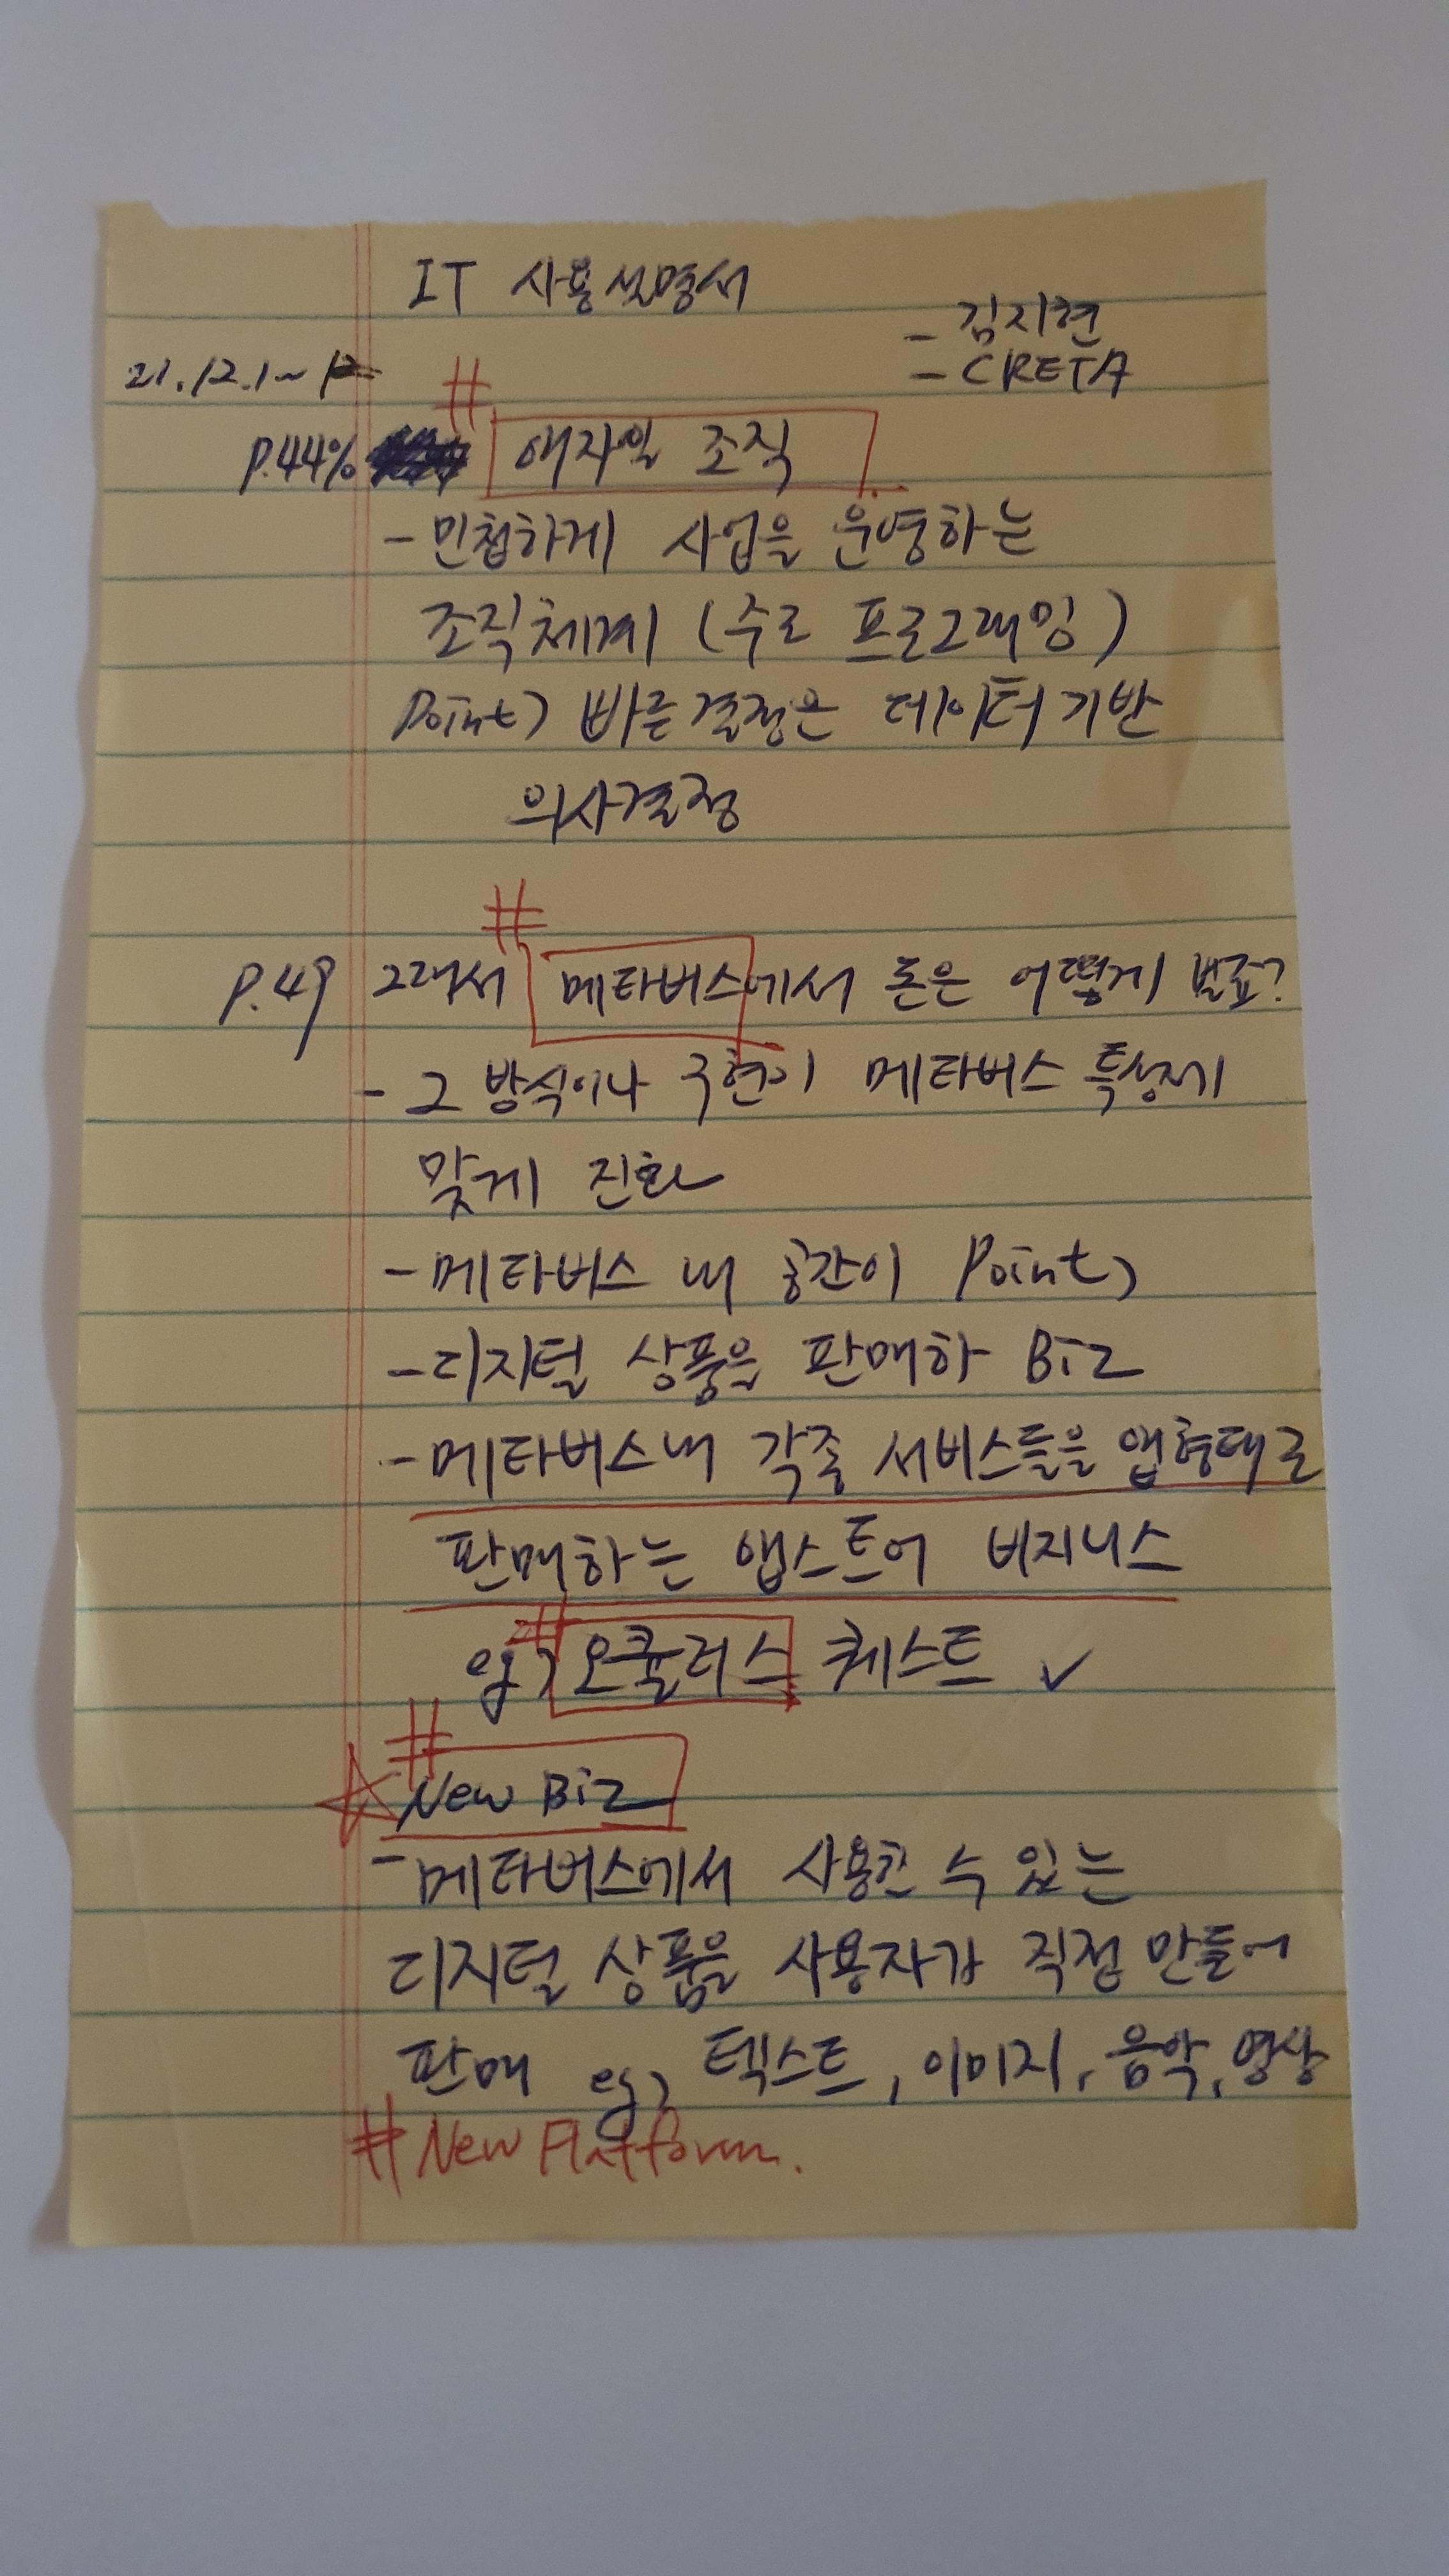 IT 사용설명서
- 김지현
- CRETA
21.12.1~
#
P.44% 애자일 조직
- 민첩하게 사업을 운영하는
조직체계 (주로 프로그래밍)
Point> 빠른결정은 데이터기반
의사결정
#
P.49 그래서 메타버스에서 돈은 어떻게 벌죠?
- 그 방식이나 구현이 메타버스 특성에
맞게 진화
- 메타버스 내 공간이 Point>
- 디지털 상품을 판매하 Biz
- 메타버스내 각종 서비스들을 앱형태로
판매하는 앱스토어 비지니스
#
eg> 오큘러스 퀘스트 ✓
#
☆ New Biz
- 메타버스에서 사용할 수 있는
디지털 상품을 사용자가 직접 만들어
판매 eg> 텍스트, 이미지, 음악, 영상
# New Platform.